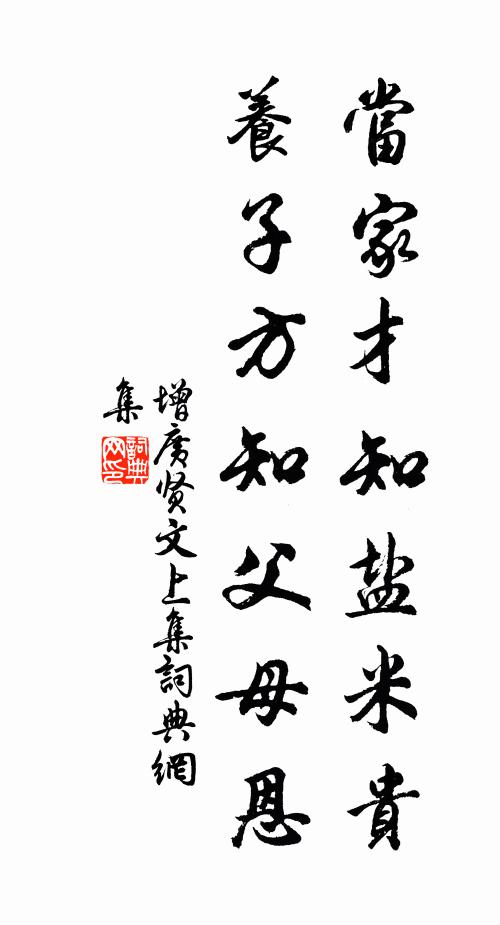 當家才知盐米貴
養子方知父母恩
增廣贤文上集詞典網
集
詞典
网印